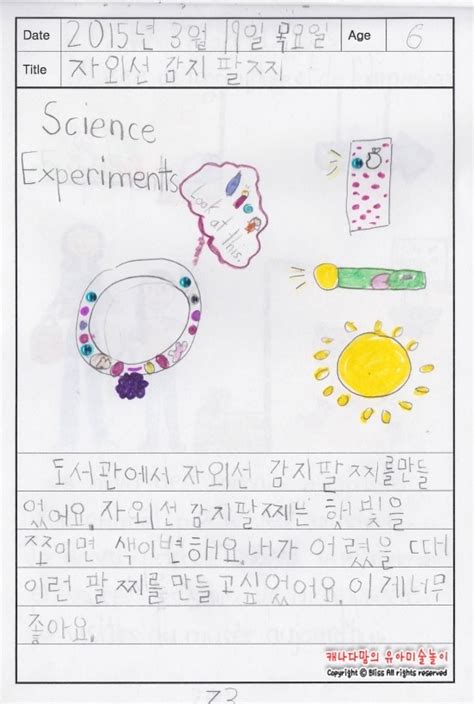 Date 2015년 3월 19일 목요일 Age 6
Title 자외선 감지 팔찌
Science
Experiments
Look
at this.
도서관에서 자외선 감지팔찌를만들
었어요. 자외선 감지팔찌는 햇빛을
쪼이면 색이변해요. 내가 어렸을 때
이런 팔찌를 만들고싶었어요. 이게너무
좋아요.
캐나다맘의 유아미술놀이
Copyright © Bliss All rights reserved
73